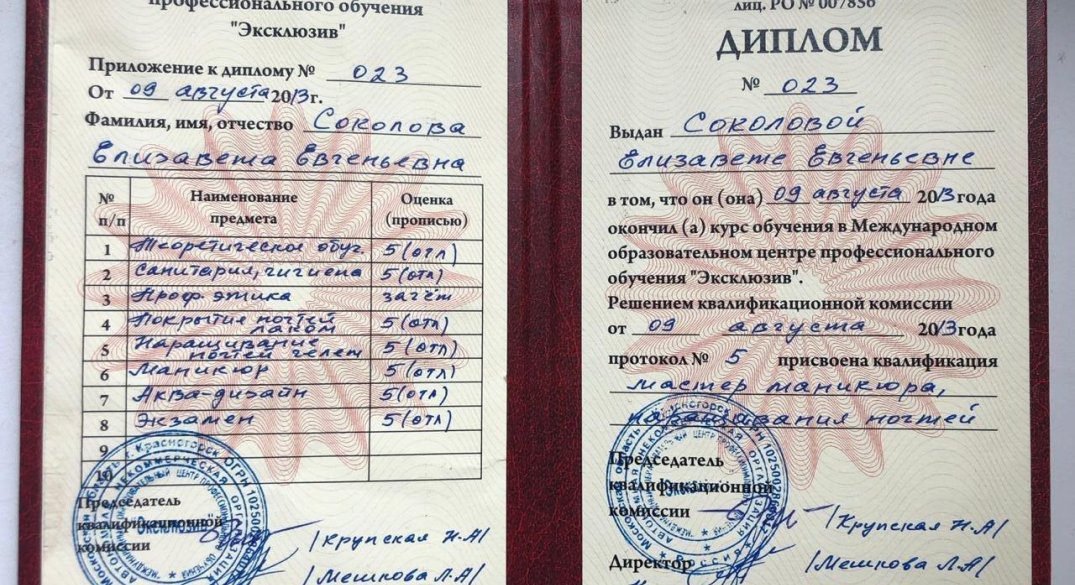 профессионального обучения
"Эксклюзив"
Приложение к диплому № 023
От 09 августа 2013г.
Фамилия, имя, отчество Соколова
Елизавета Евгеньевна
№ п/п Наименование предмета Оценка (прописью)
1 Теоретическое обуч. 5 (отл)
2 Санитария, гигиена 5 (отл)
3 Проф. этика зачёт
4 Покрытие ногтей лаком 5 (отл)
5 Наращивание ногтей гелем 5 (отл)
6 Маникюр 5 (отл)
7 Аква-дизайн 5 (отл)
8 Экзамен 5 (отл)
9
10
Председатель
квалификационной
комиссии
/Крупская Н.А/
/Мешкова Л.А/
г. Красногорск ОГРН
НЕКОММЕРЧЕСКАЯ ОРГАНИЗАЦИЯ
Эксклюзив
лиц. РО № 007856
ДИПЛОМ
№ 023
Выдан Соколовой
Елизавете Евгеньевне
в том, что он (она) 09 августа 2013 года
окончил (а) курс обучения в Международном
образовательном центре профессионального
обучения "Эксклюзив".
Решением квалификационной комиссии
от 09 августа 2013 года
протокол № 5 присвоена квалификация
мастер маникюра,
наращивания ногтей
Председатель
квалификационной
комиссии /Крупская Н.А/
Директор /Мешкова Л.А/
Московская область